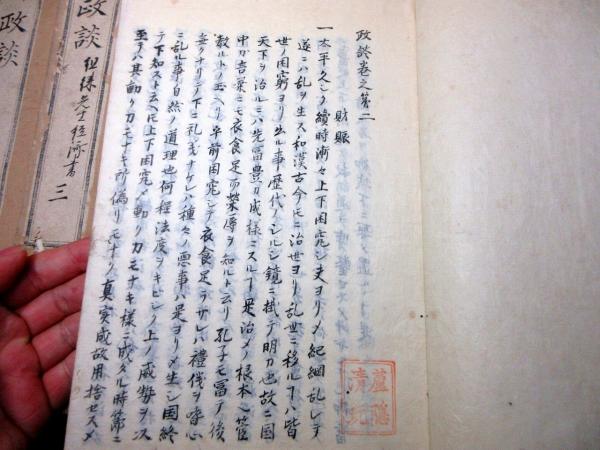 政談巻之第二
財賑
一太平久シク續時漸々上下困窮シ夫ヨリメ紀綱乱レテ
遂ニハ乱ヲ生ス和漢古今モニ治世ヨリ乱世ニ移ルヿハ皆
世ノ困窮ヨリ出ル事歴代ノシルシ鏡ニ掛テ明カ也故ニ国
天下ヲ治ルニハ先冨豊カ成様ニスルヿ是治メノ根本也管
中カ言葉ニモ衣食足而栄辱ヲ知ルト云リ孔子モ冨テ後
教ルト玉ヘリ 前困窮シテ衣食足ラサレハ禮儀ヲ嗜心
無クナリテ下ニ礼義ナケレハ種々ノ悪事ハ是ヨリメ生シ国終
ニ乱ル事自然ノ道理也何程法度ヲキビシク上ノ威勢ヲ以
テ下知スト云ヘ上下困究メ動ク力モナキ様ニ成タル時節ニ
至テハ其動ク力モナキ所偽リモナク真実成故用捨セスメ
清玩
政談 徂徠先生経済書 三
政談